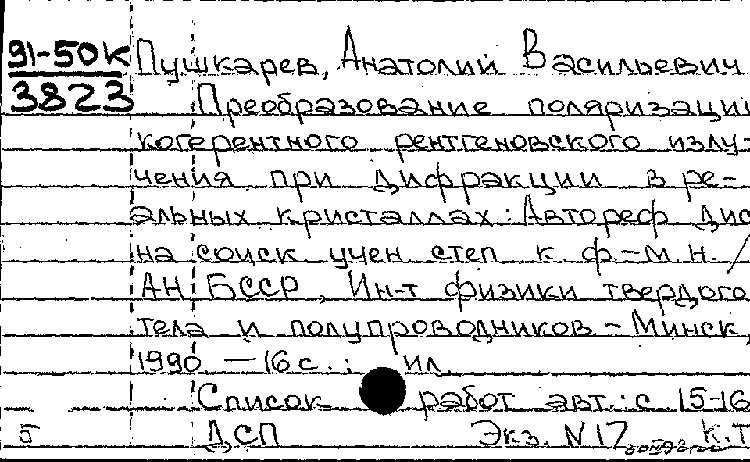 91-50К Пушкарев, Анатолий Васильевич
3823 Преобразование поляризации
когерентного рентгеновского излу-
чения при дифракции в ре-
альных кристаллах: Автореф дис
на соиск учен степ к ф-м.н. /
АН БССР, Ин-т физики твердого
тела и полупроводников - Минск,
1990. — 16 с.: ил.
Список работ авт.: с 15-16
5 ДСП Экз. N 17 К.Т